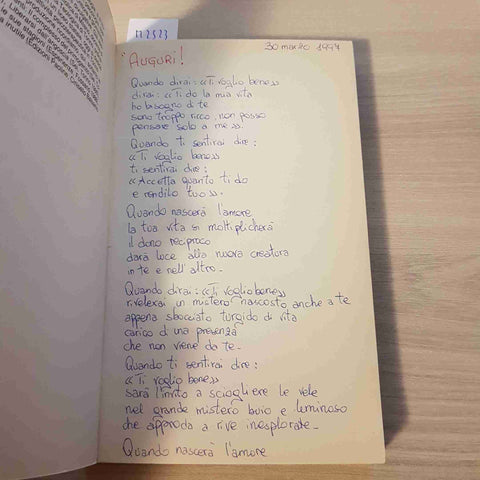 M2523
30 marzo 1994
"AUGURI!
Quando dirai: «Ti voglio bene»
dirai: «Ti do la mia vita
ho bisogno di te
sono troppo ricco, non posso
pensare solo a me».
Quando ti sentirai dire:
«Ti voglio bene»
ti sentirai dire:
«Accetta quanto ti do
e rendilo tuo».
Quando nascerà l'amore
la tua vita si moltiplicherà
il dono reciproco
darà luce alla nuova creatura
in te e nell'altro.
Quando dirai: «Ti voglio bene»
rivelerai un mistero nascosto anche a te
appena sbocciato turgido di vita
carico di una presenza
che non viene da te.
Quando ti sentirai dire:
«Ti voglio bene»
sarà l'invito a sciogliere le vele
nel grande mistero buio e luminoso
che approda a rive inesplorate.
Quando nascerà l'amore